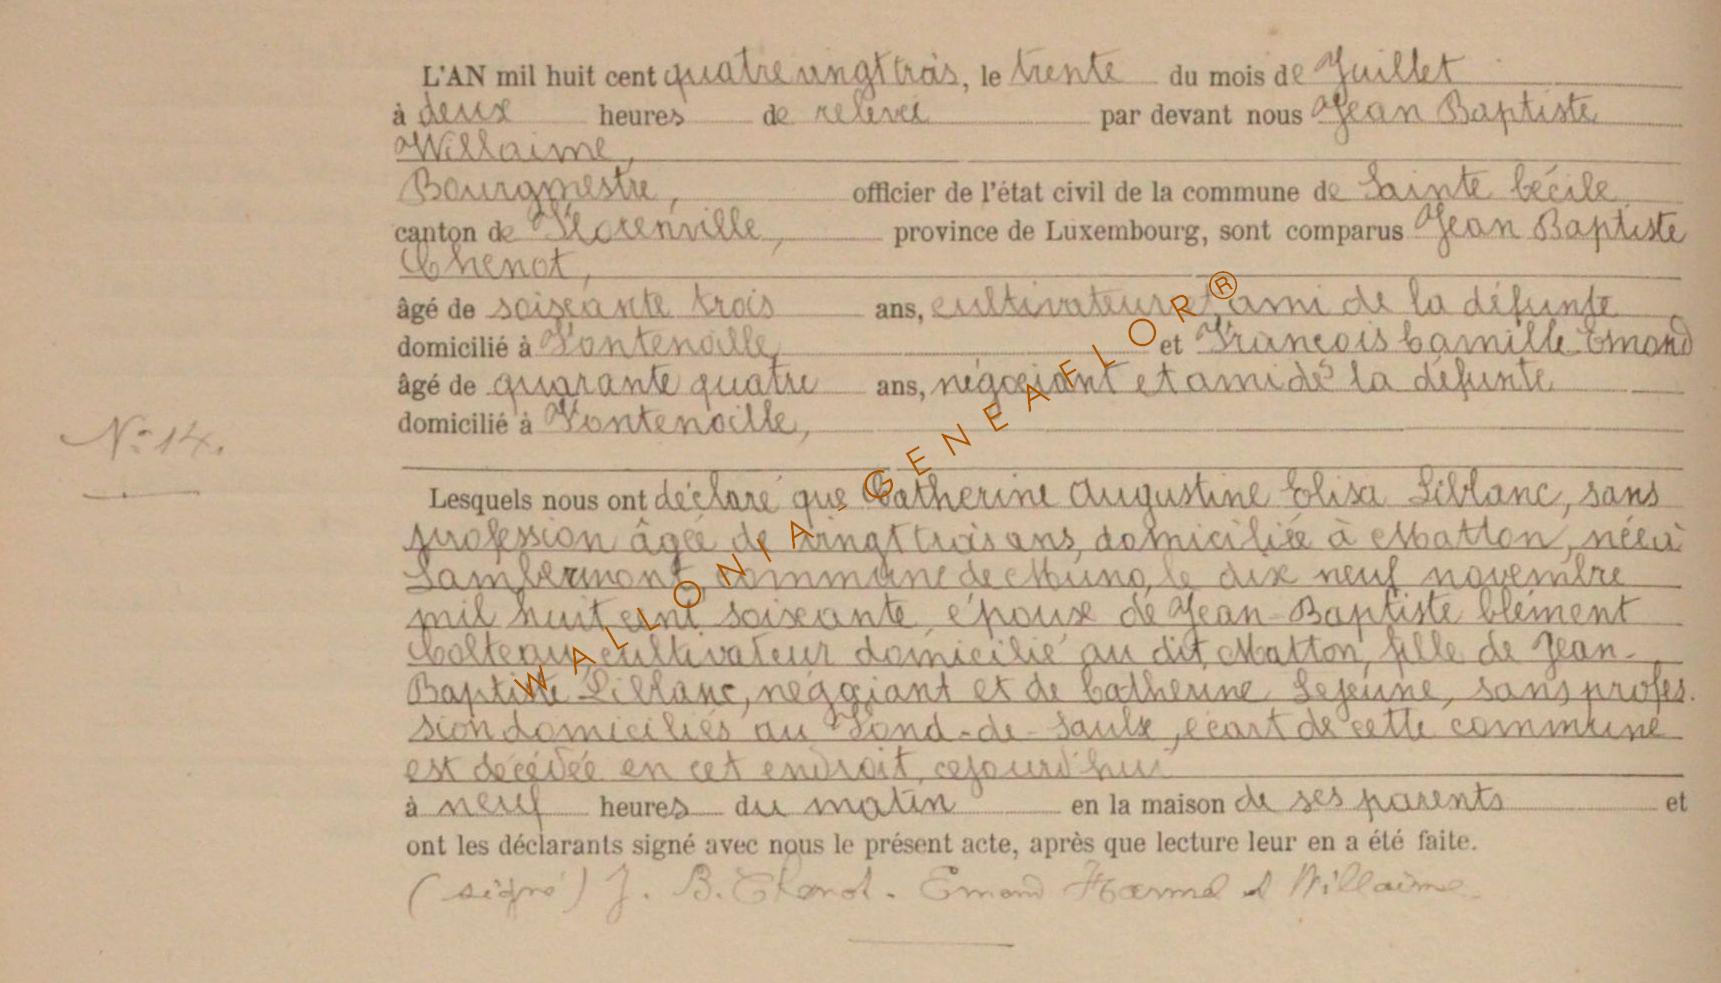 L'AN mil huit cent quatre vingt trois, le trente du mois de Juillet
à deux heures de relevée par devant nous Jean Baptiste
Willaime,
Bourgmestre, officier de l'état civil de la commune de Sainte Cécile
canton de Florenville, province de Luxembourg, sont comparus Jean Baptiste
Chenot,
âgé de soixante trois ans, cultivateur et ami de la défunte
domicilié à Fontenoille, et François Camille Emond
âgé de quarante quatre ans, négociant et ami de la défunte
domicilié à Fontenoille,
N° 14.
Lesquels nous ont déclaré que Catherine Augustine Elisa Liblanc, sans
profession âgée de vingt trois ans, domiciliée à Matton, née à
Lambermont, commune de Muno, le dix neuf novembre
mil huit cent soixante épouse de Jean-Baptiste Clément
Colteau, cultivateur domicilié au dit Matton, fille de Jean-
Baptiste Liblanc, négociant et de Catherine Lejeune, sans profes.
sion domiciliés au Fond-de-Saulx, écart de cette commune
est décédée en cet endroit, cejourd'hui
à neuf heures du matin en la maison de ses parents et
ont les déclarants signé avec nous le présent acte, après que lecture leur en a été faite.
(signé) J. B. Chenot. Emond Harmel et Willaime.
WALLONIA-GENEAFLOR®